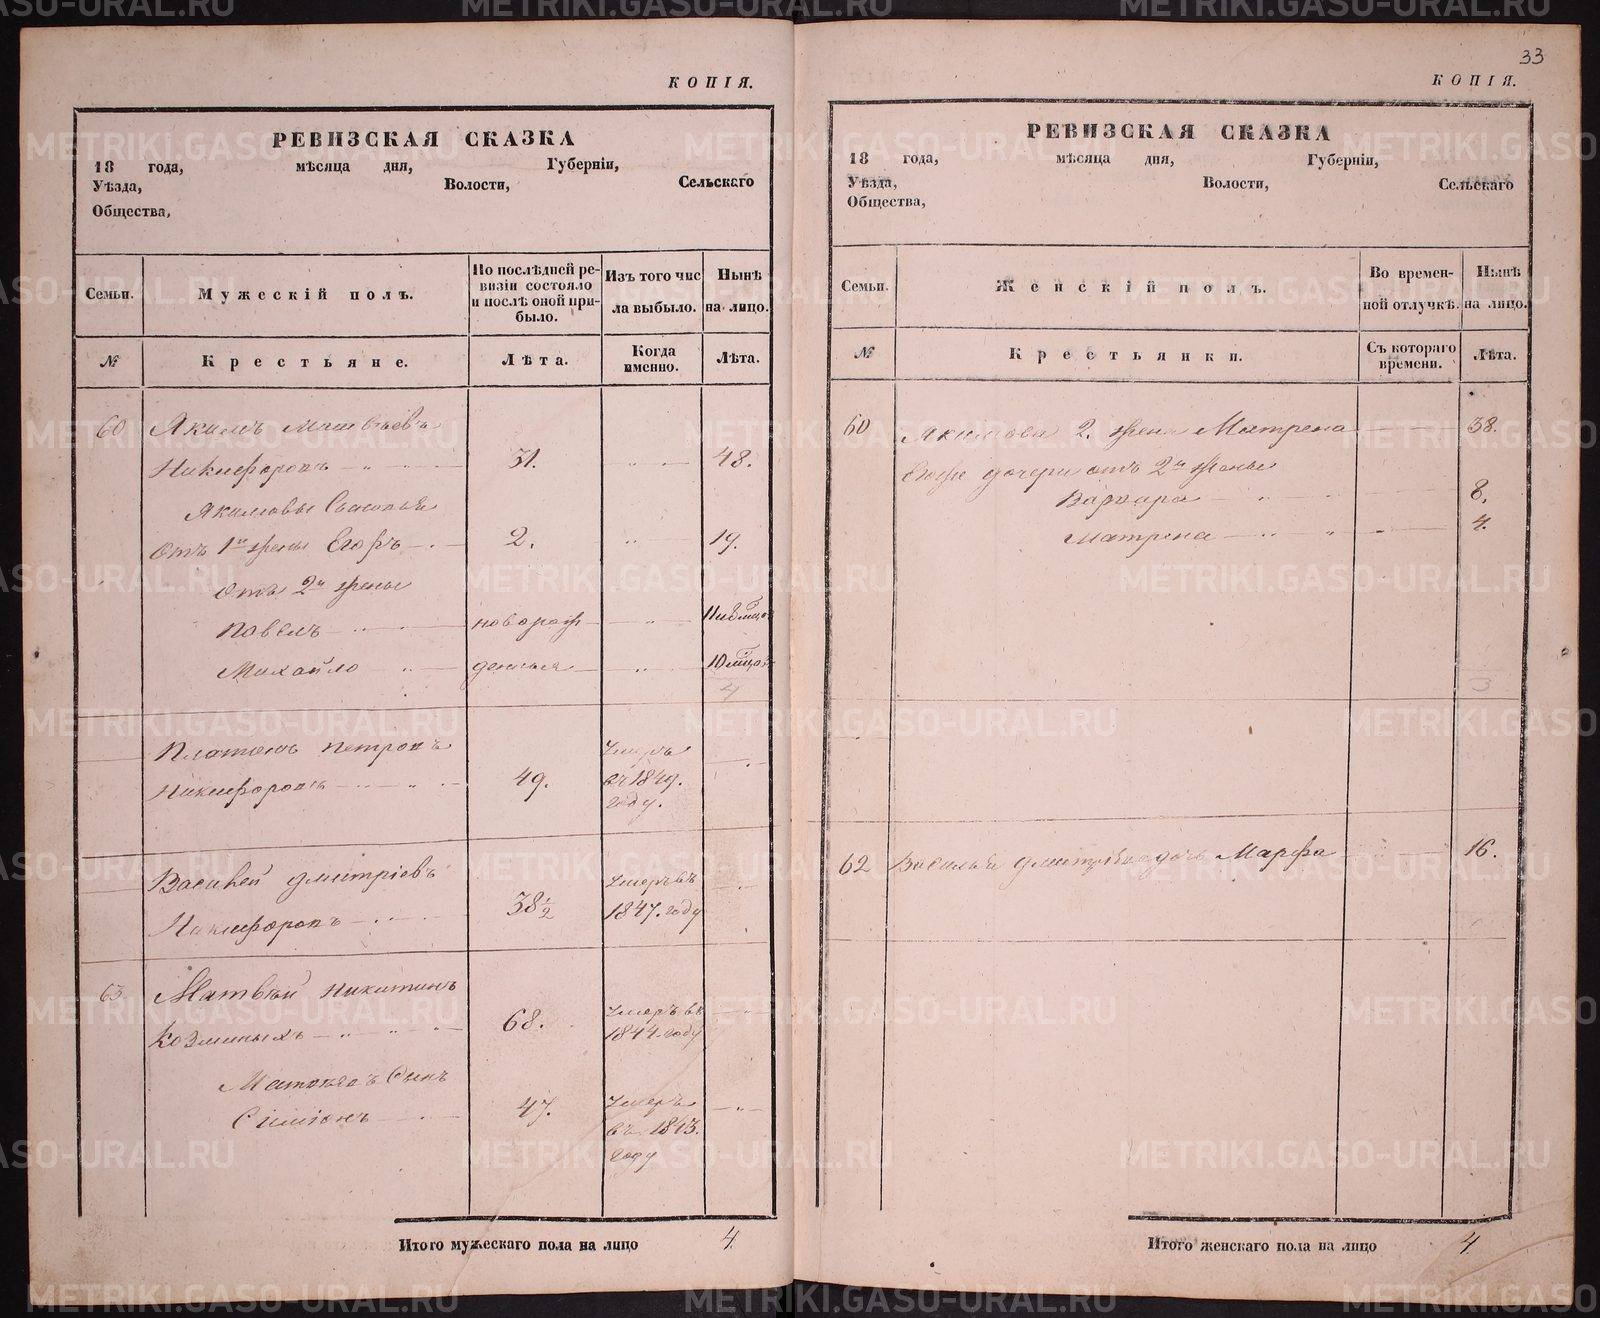 КОПІЯ.
РЕВИЗСКАЯ СКАЗКА
18 года, мѣсяца дня, Губерніи,
Уѣзда, Волости, Сельскаго
Общества,
Семьи. Мужескій полъ. По послѣдней ревизіи состояло и послѣ оной прибыло. Изъ того числа выбыло. Нынѣ на лицо.
№ Крестьяне. Лѣта. Когда именно. Лѣта.
60 Якимъ Матвѣевъ
Никифоровъ 31. 48.
Якимовы Сыновья
Отъ 1й жены Егоръ 2. 19.
Отъ 2й жены
Павелъ новорож
Михайло денные
4
Платонъ Петровъ Умеръ
Никифоровъ 49. въ 1849.
году.
Василей Дмитріевъ Умеръ въ
Никифоровъ 38½ 1847. году
63 Матвѣй Никитинъ
Козминыхъ 68. Умеръ въ
1844. году
Матвѣевъ Сынъ
Симіонъ 47. Умеръ
въ 1843.
году
Итого мужескаго пола на лицо 4.
33
КОПІЯ.
РЕВИЗСКАЯ СКАЗКА
18 года, мѣсяца дня, Губерніи,
Уѣзда, Волости, Сельскаго
Общества,
Семьи. Женскій полъ. Во временной отлучкѣ. Нынѣ на лицо.
№ Крестьянки. Съ котораго времени. Лѣта.
60 Якимова 2. жена Матрена 38.
Егоже дочери отъ 2й жены
Варвара 8.
Матрена 4.
3
62 Василья Дмитріева дочь Марфа 16.
Итого женскаго пола на лицо 4.
METRIKI.GASO-URAL.RU